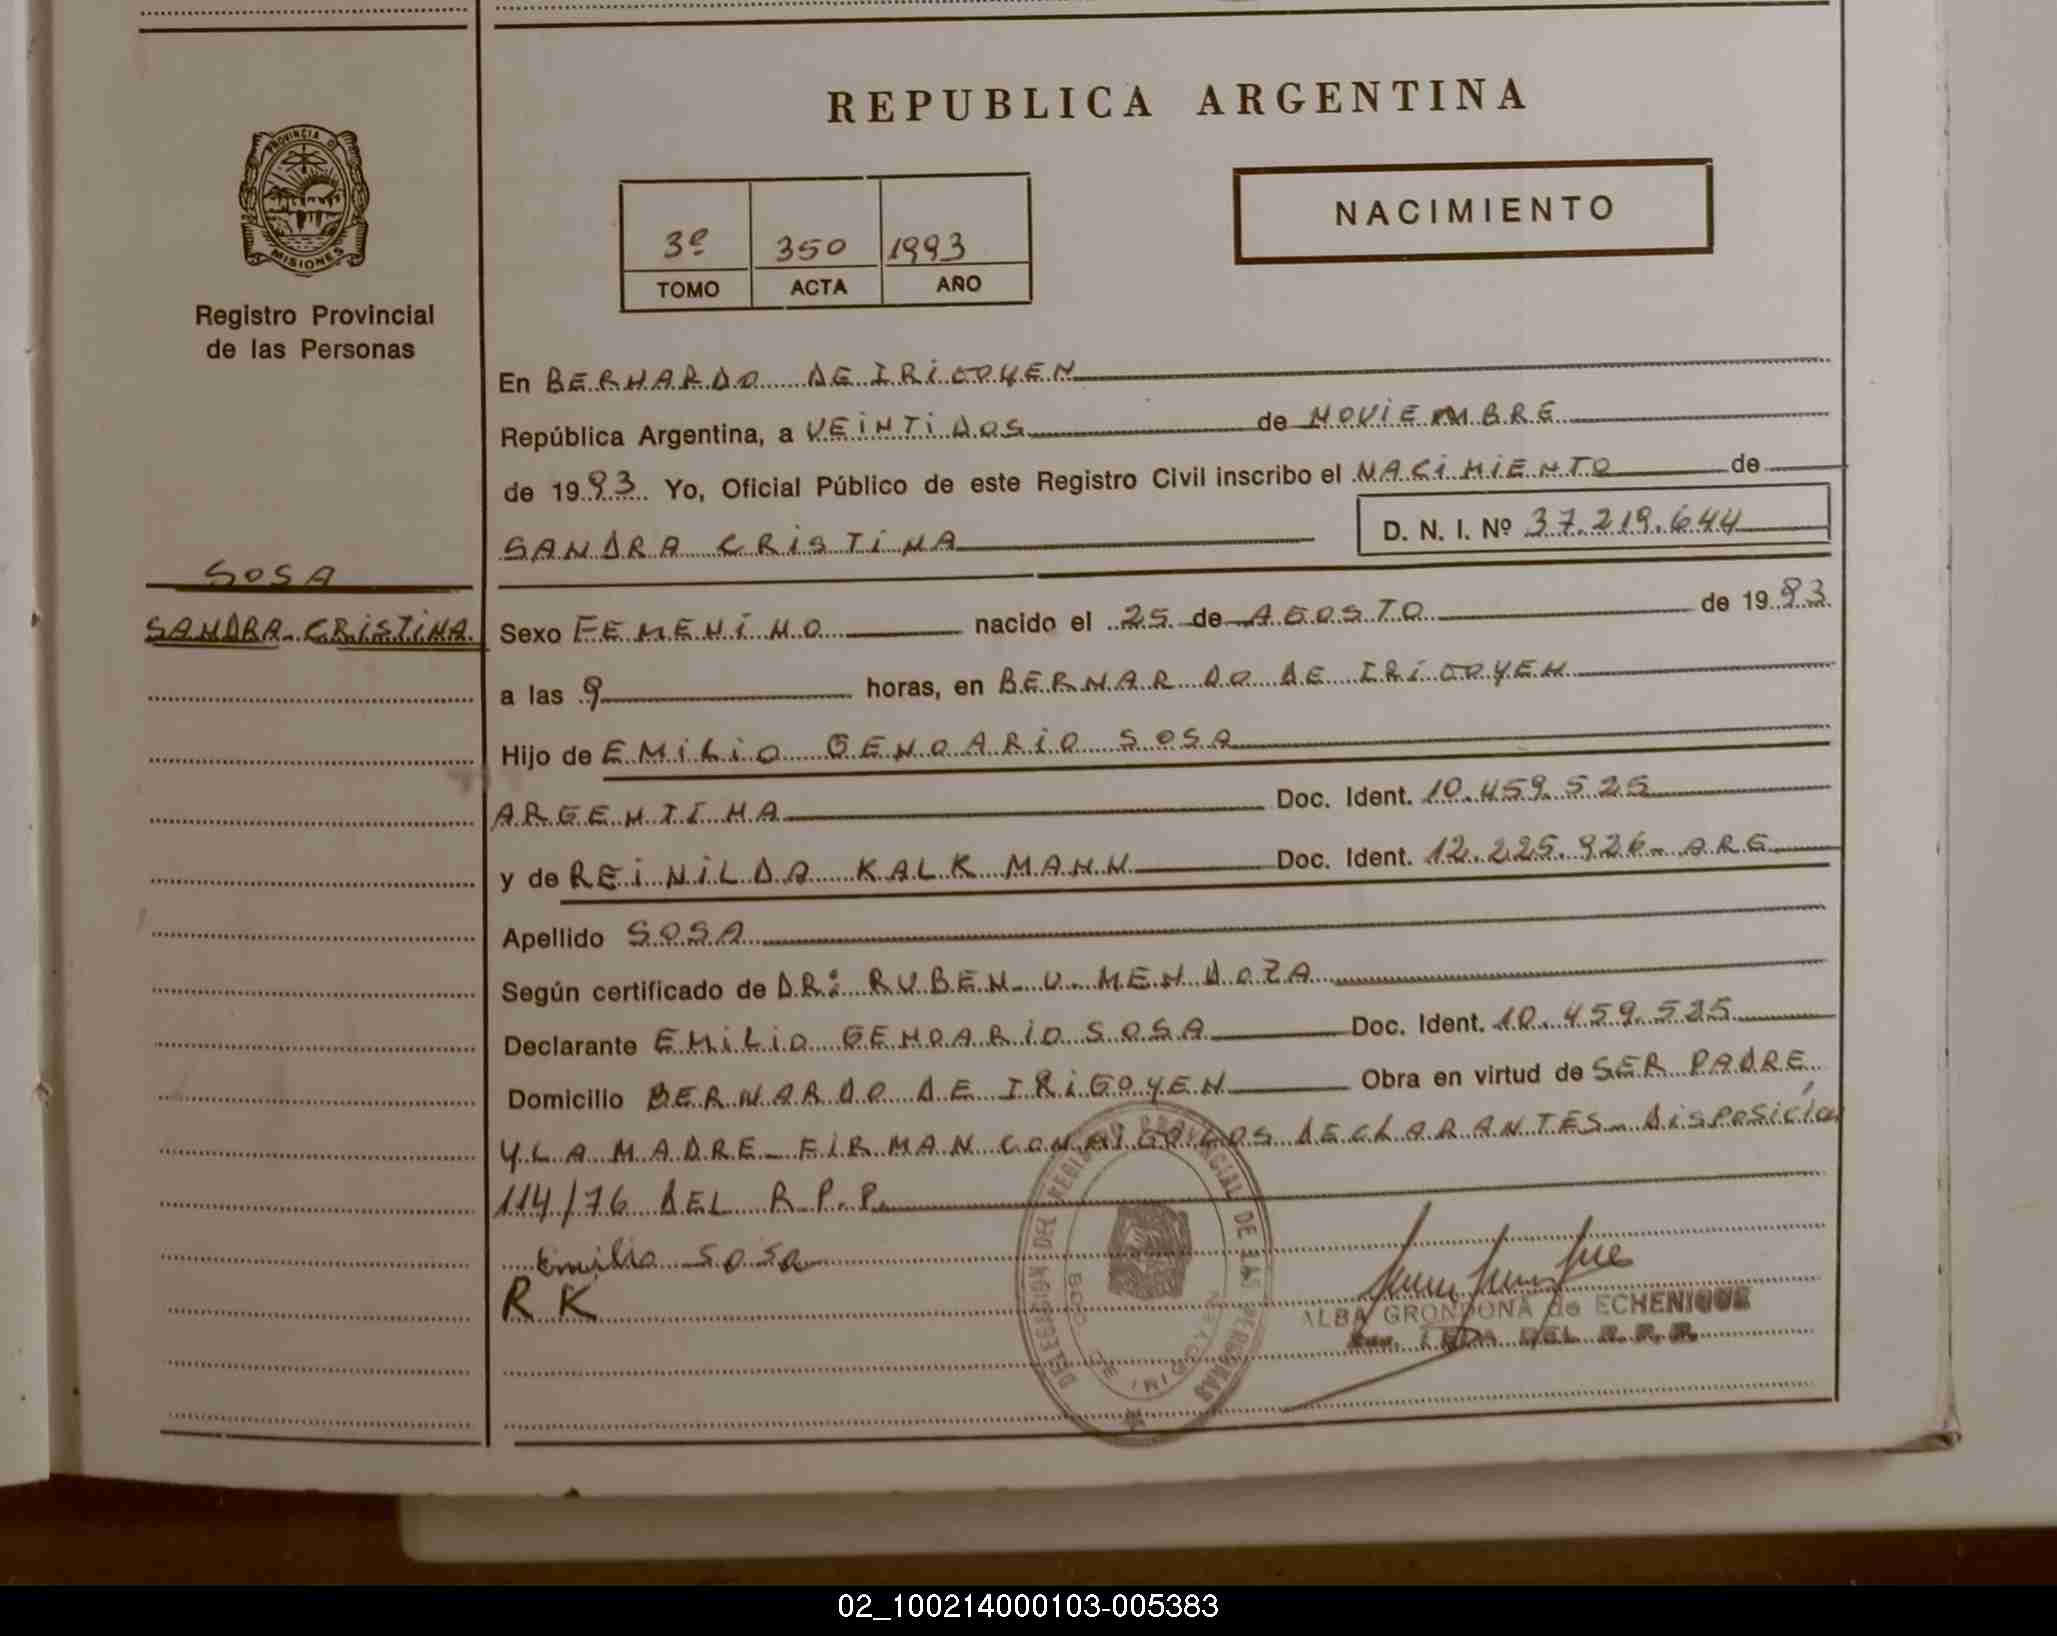 REPUBLICA ARGENTINA
PROVINCIA DE
MISIONES
Registro Provincial
de las Personas
NACIMIENTO
3º 350 1993
TOMO ACTA AÑO
En BERNARDO DE IRIGOYEN
República Argentina, a VEINTIDOS de NOVIEMBRE
de 1993 Yo, Oficial Público de este Registro Civil inscribo el NACIMIENTO de
SANDRA CRISTINA D. N. I. Nº 37.219.644
SOSA
SANDRA CRISTINA
Sexo FEMENINO nacido el 25 de AGOSTO de 1993
a las 9 horas, en BERNARDO DE IRIGOYEN
Hijo de EMILIO GENOARIO SOSA
ARGENTINA Doc. Ident. 10.459.525
y de REINILDA KALKMANN Doc. Ident. 12.225.926- ARG
Apellido SOSA
Según certificado de DR: RUBEN U. MENDOZA
Declarante EMILIO GENOARIO SOSA Doc. Ident. 10.459.525
Domicilio BERNARDO DE IRIGOYEN Obra en virtud de SER PADRE
Y LA MADRE- FIRMAN CONMIGO LOS DECLARANTES- DISPOSICIÓN
114/76 DEL R.P.P.
Emilio Sosa
R K
DELEGACION DEL REGISTRO PROVINCIAL DE LAS PERSONAS
BDO. DE IRIGOYEN
ALBA GRONDONA de ECHENIQUE
DEL R.P.P.
02_100214000103-005383